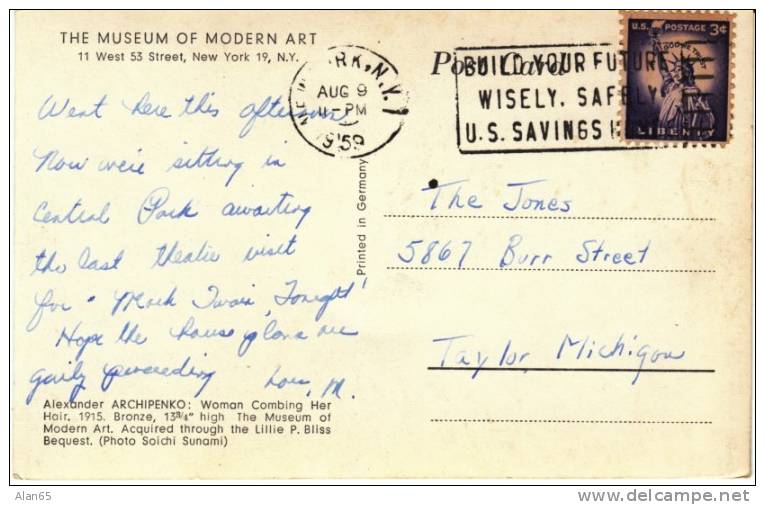 THE MUSEUM OF MODERN ART
11 West 53 Street, New York 19, N.Y.
Post Card
NEW YORK, N.Y.
AUG 9
PM
1959
BUILD YOUR FUTURE
WISELY. SAFELY
U.S. SAVINGS
U.S. POSTAGE 3¢
IN GOD WE TRUST
LIBERTY
Went here this afternoon
Now we're sitting in
Central Park awaiting
the last theatre visit
for "Mark Twain, Tonight!
Hope the house plans are
gaily proceeding
Love, M.
Printed in Germany
The Jones
5867 Burr Street
Taylor, Michigan
Alexander ARCHIPENKO: Woman Combing Her
Hair. 1915. Bronze, 13¾" high The Museum of
Modern Art. Acquired through the Lillie P. Bliss
Bequest. (Photo Soichi Sunami)
Alan65
© delcampe.net